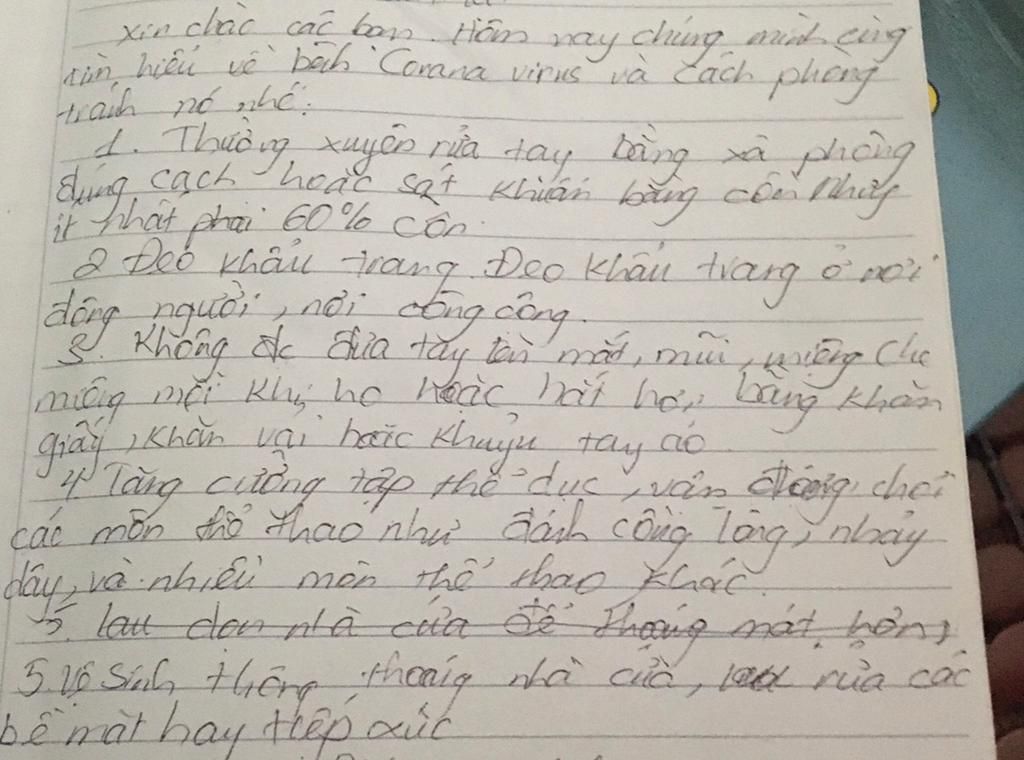 xin chào các bạn. Hôm nay chúng mình cùng
tìm hiểu về bệnh Corana virus và cách phòng
tránh nó nhé:
1. Thường xuyên rửa tay bằng xà phòng
đúng cách hoặc sát khuẩn bằng cồn nhưng
ít nhất phải 60% cồn.
2 Đeo khẩu trang. Đeo khẩu trang ở nơi
đông người, nơi công cộng.
3. Không đc đưa tay lên mắt, mũi, miệng che
miệng mỗi khi ho hoặc hắt hơi, bằng khăn
giấy, khăn vải hoặc khuỷu tay áo
4 Tăng cường tập thể dục, vận động, chơi
các môn thể thao như đánh cầu lông, nhảy
dây, và nhiều môn thể thao khác.
5. lau dọn nhà cửa để thoáng mát hơn,
5. Vệ sinh thông thoáng nhà cửa, lau rửa các
bề mặt hay tiếp xúc